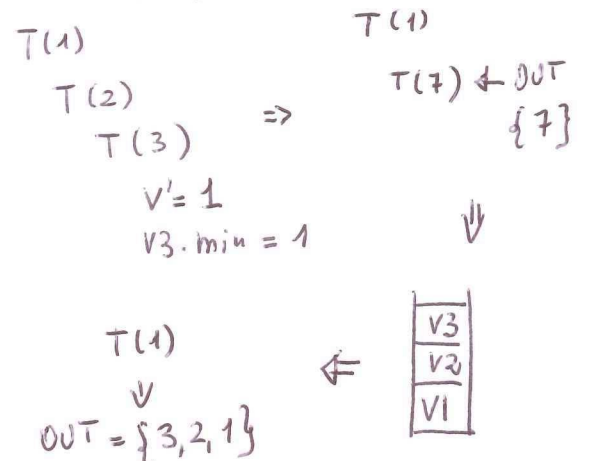 T(1)
T(2)
T(3)
V'= 1
V3.min = 1
=>
T(1)
T(7) ← OUT
{7}
⇓
V3
V2
V1
⇐
T(1)
⇓
OUT = {3,2,1}